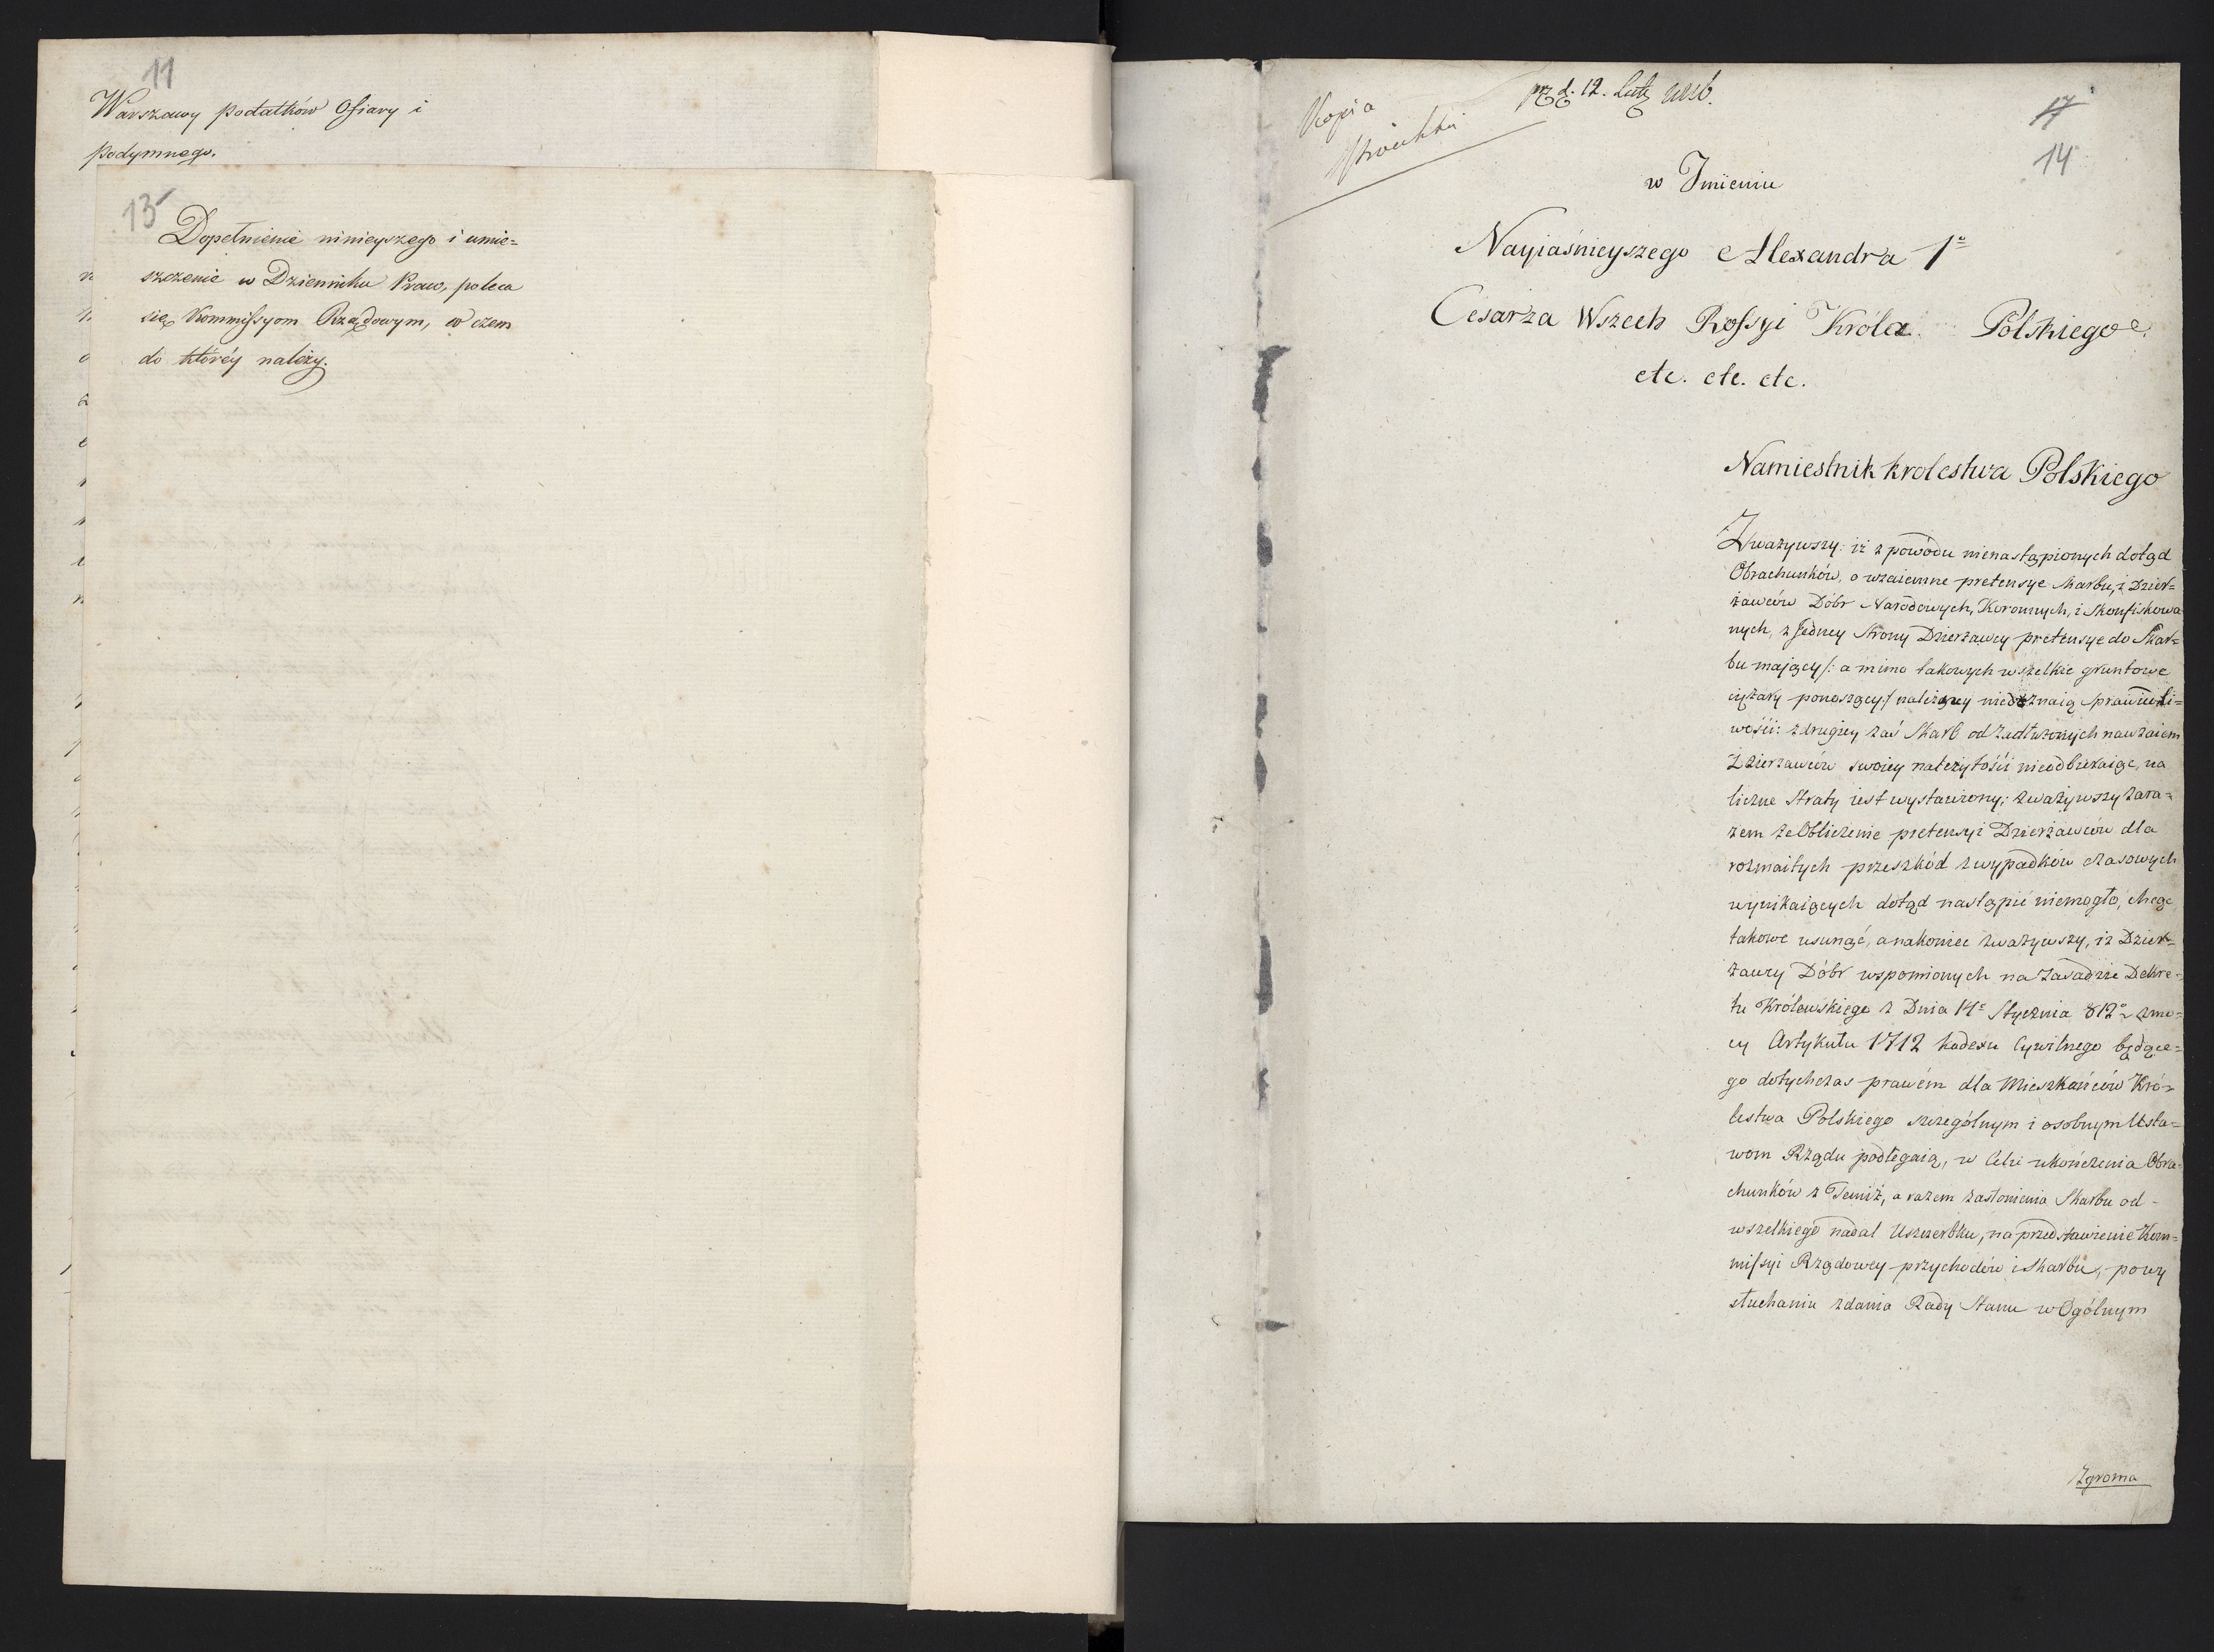 11
Warszawy podatków Ofiary i
podymnego.
13
Dopełnienie ninieyszego i umie=
szczenie w Dzienniku Praw, poleca
się Kommissyom Rządowym, w czem
do któréy należy.
Kopia
d. 12.
17
14
w Jmieniu
Nayiaśnieyszego Alexandra 1º
Cesarza Wszech Rossyi Króla Polskiego
etc. etc. etc.
Namiestnik krolestwa Polskiego
Zważywszy: iż z powodu nienastąpionych dotąd
Obrachunków, o wzaiemne pretensye Skarbu, i Dzier=
żawców Dóbr Narodowych, Koronnych, i Skonfiskowa
nych, z Jedney Strony Dzierżawcy pretensye do Skar=
bu maiący /: a mimo takowych wszelkie gruntowe
ciężary ponoszący :/ należney niedoznaią Sprawiedli=
wości: z drugiey zaś Skarb od Zadłużonych nawzaiem
Dzierżawców swoiey należytości nieodbieraiąc, na
liczne Straty iest wystawiony; zważywszy zara=
zem że Obliczenie pretensyi Dzierżawców dla
rozmaitych przeszkód z wypadków czasowych
wynikaiących dotąd nastąpić niemogło, chcąc
takowe usunąć, a nakoniec zważywszy, iż Dzier=
żawcy Dóbr wspomionych na Zasadzie Dekre=
tu Królewskiego z Dnia 14º Stycznia 812º z mo=
cy Artykułu 1712 kodexu Cywilnego będące=
go dotychczas prawem dla Mieszkańców Kró=
lestwa Polskiego szczególnym i osobnym Usta=
wom Rządu podlegaią, w Celu ukończenia Obra=
chunków z Temiż, a razem zasłonienia Skarbu od
wszelkiego nadal Uszczerbku, na przedstawienie Kom=
missyi Rządowey przychodów i Skarbu, po wy
słuchaniu zdania Rady Stanu w Ogólnym
Zgroma